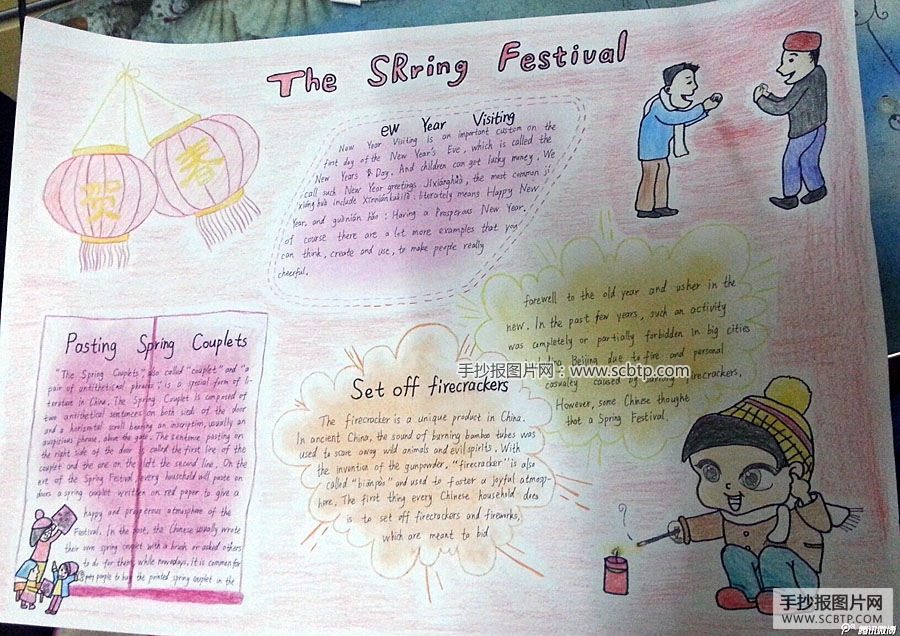 The SRring Festival
贺
春
ew Year Visiting
New Year Visiting is an important custom on the
first day of the New Year's Eve, which is called the
New Years Day. And children can get lucky money. We
call such New Year greetings JIxiánghuà, the most common ji
xiánghuà include XInniánkuàilè: literately means Happy New
Year. and guònián hǎo: Having a Prosperous New Year.
of course there are a lot more examples that you
can think, create and use, to make people really
cheerful.
Pasting Spring Couplets
"The Spring Couplets", also called "couplet" and "a
pair of antithetical phrases", is a special form of li-
terature in China. The Spring Couplet is composed of
two antithetical sentences on both sides of the door
and a horizontal scroll bearing an inscription, usually an
auspicious phrase, above the gate. The sentence pasting on
the right side of the door is called the first line of the
couplet and the one on the left the second line. On the
eve of the Spring Festival, every household will paste on
doors a spring couplet written on red paper to give a
happy and prosperous atmosphere of the
Festival. In the past, the Chinese usually wrote
their own spring couplet with a brush or asked others
to do for them, while nowadays. It is common for
people to buy the printed spring couplet in the
Set off firecrackers
The firecracker is a unique product in China.
In ancient China, the sound of burning bamboo tubes was
used to scare away wild animals and evil spirits. With
the invention of the gunpowder, "firecracker" is also
called "biānpào" and used to foster a joyful atmosp-
here. The first thing every Chinese household does
is to set off firecrackers and fireworks,
which are meant to bid
farewell to the old year and usher in the
new. In the past few years, such an activity
was completely or partially forbidden in big cities
Beijing due to fire and personal
casualty caused by burning firecrackers.
However, some Chinese thought
that a Spring Festival.
?
手抄报图片网：www.scbtp.com
手抄报图片网
WWW.SCBTP.COM
腾讯微博